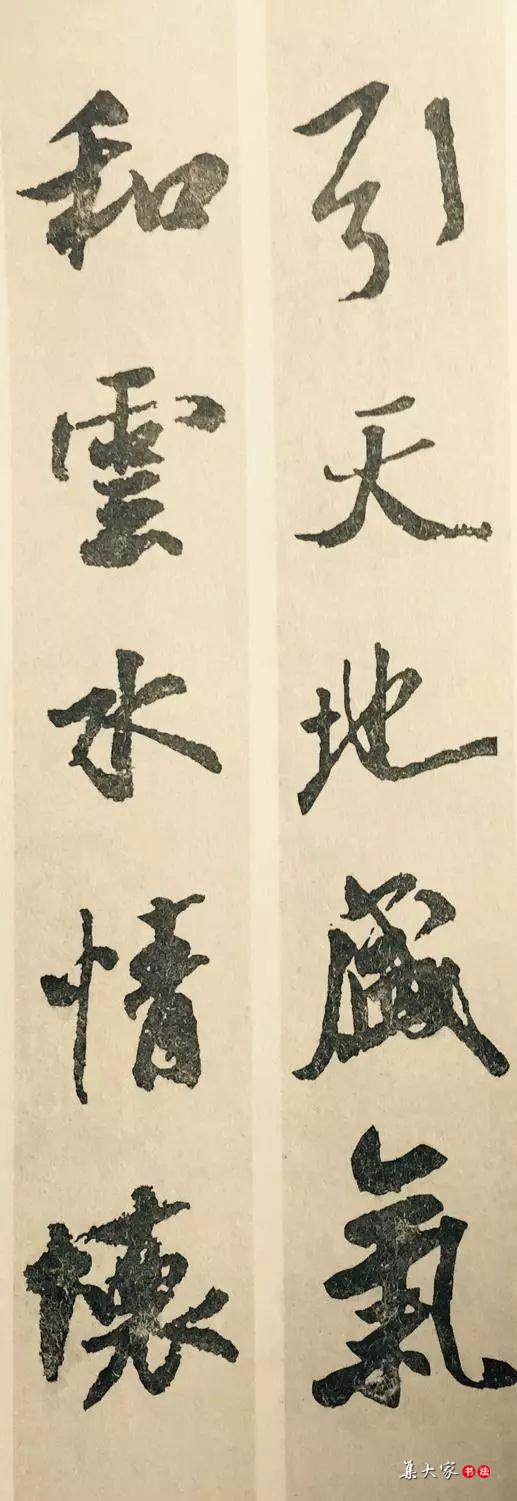 引天地盛氣
和雲水情懷
集大家书法